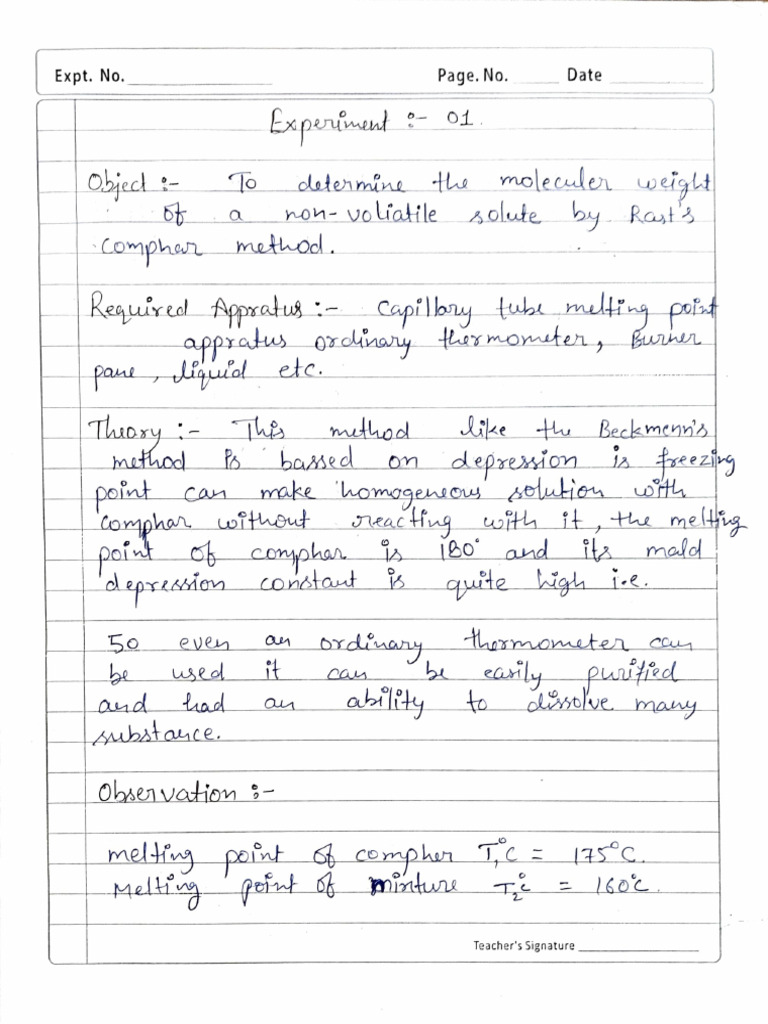 Expt. No. Page. No. Date
Experiment :- 01.
Object :- To determine the moleculer weight
of a non-voliatile solute by Rast's
comphar method.
Required Appratus :- Capillary tube melting point
appratus ordinary thermometer, Burner
pane, liquid etc.
Theory :- This method like the Beckmenn's
method is bassed on depression is freezing
point can make homogeneous solution with
comphar without reacting with it, the melting
point of comphar is 180° and its mald
depression constant is quite high i.e.
So even an ordinary thermometer can
be used it can be easily purified
and had an ability to dissolve many
substance.
Observation :-
melting point of compher T₁°C = 175°C.
Melting point of minture T₂°C = 160°C.
Teacher's Signature